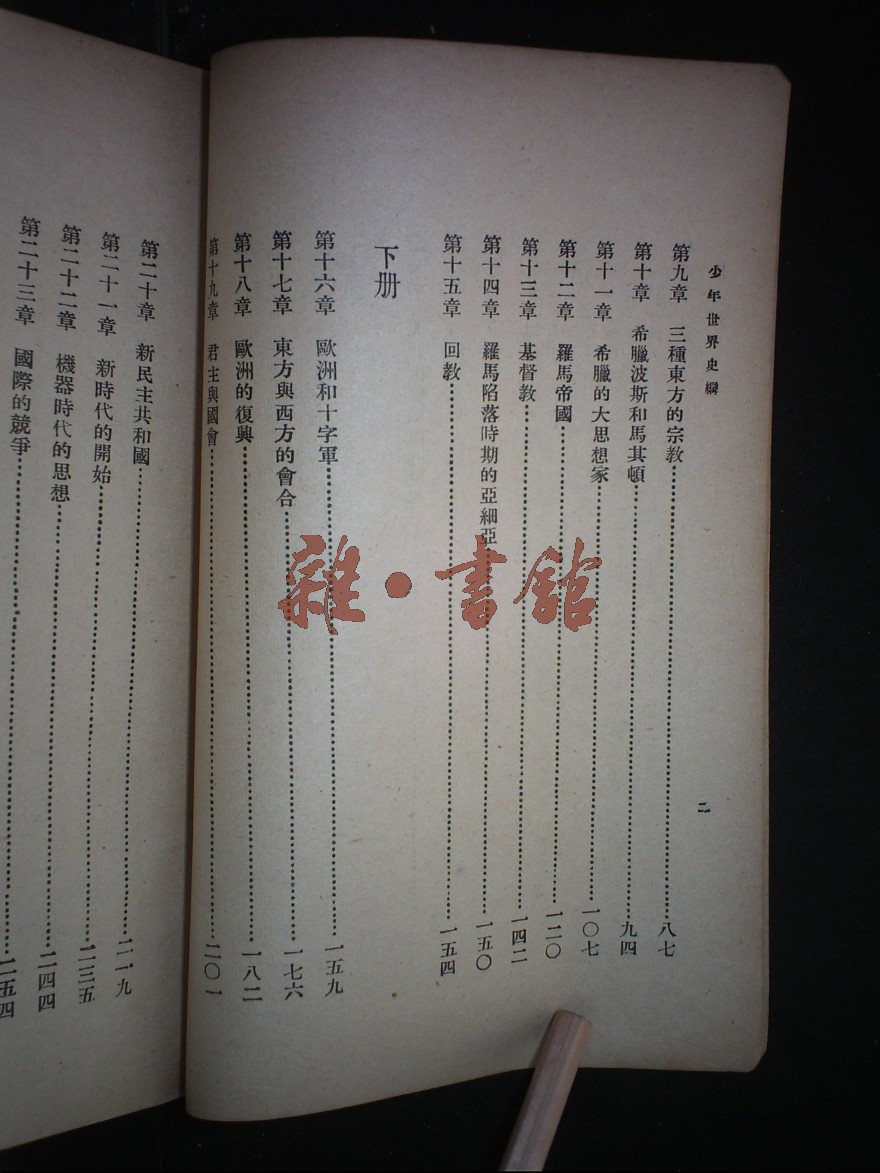 少年世界史綱
二
第九章 三種東方的宗教…………八七
第十章 希臘波斯和馬其頓…………九四
第十一章 希臘的大思想家…………一〇七
第十二章 羅馬帝國…………一二〇
第十三章 基督教…………一四二
第十四章 羅馬陷落時期的亞細亞…………一五〇
第十五章 回教…………一五四
下册
第十六章 歐洲和十字軍…………一五九
第十七章 東方與西方的會合…………一七六
第十八章 歐洲的復興…………一八二
第十九章 君主與國會…………二〇一
第二十章 新民主共和國…………二一九
第二十一章 新時代的開始…………二三五
第二十二章 機器時代的思想…………二四四
第二十三章 國際的競爭…………二五四
雜·書館